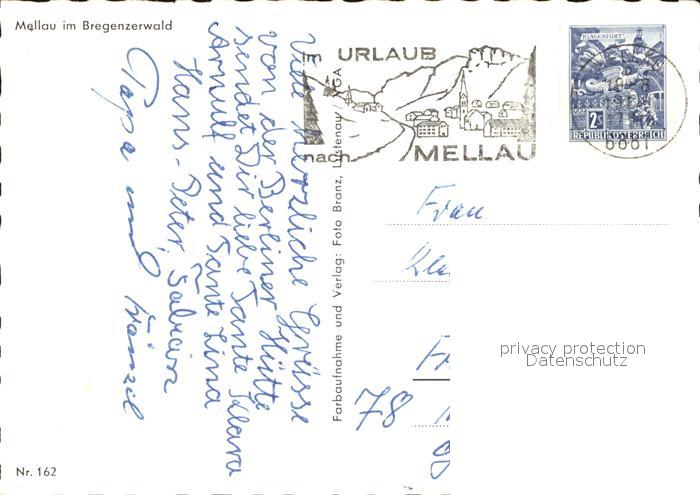 Mellau im Bregenzerwald
Viele herzliche Grüsse
von der Berliner Hütte
sendet Dir liebe Tante Klara
Arnulf und Tante Lina
Hans-Peter, Fabian
Papa und Fränzel
Farbaufnahme und Verlag: Foto Branz, Lustenau
im URLAUB
nach MELLAU
KLAGENFURT
2S
REPUBLIK ÖSTERREICH
MELLAU
6881
Frau
Kla
Fr
78
privacy protection
Datenschutz
Nr. 162